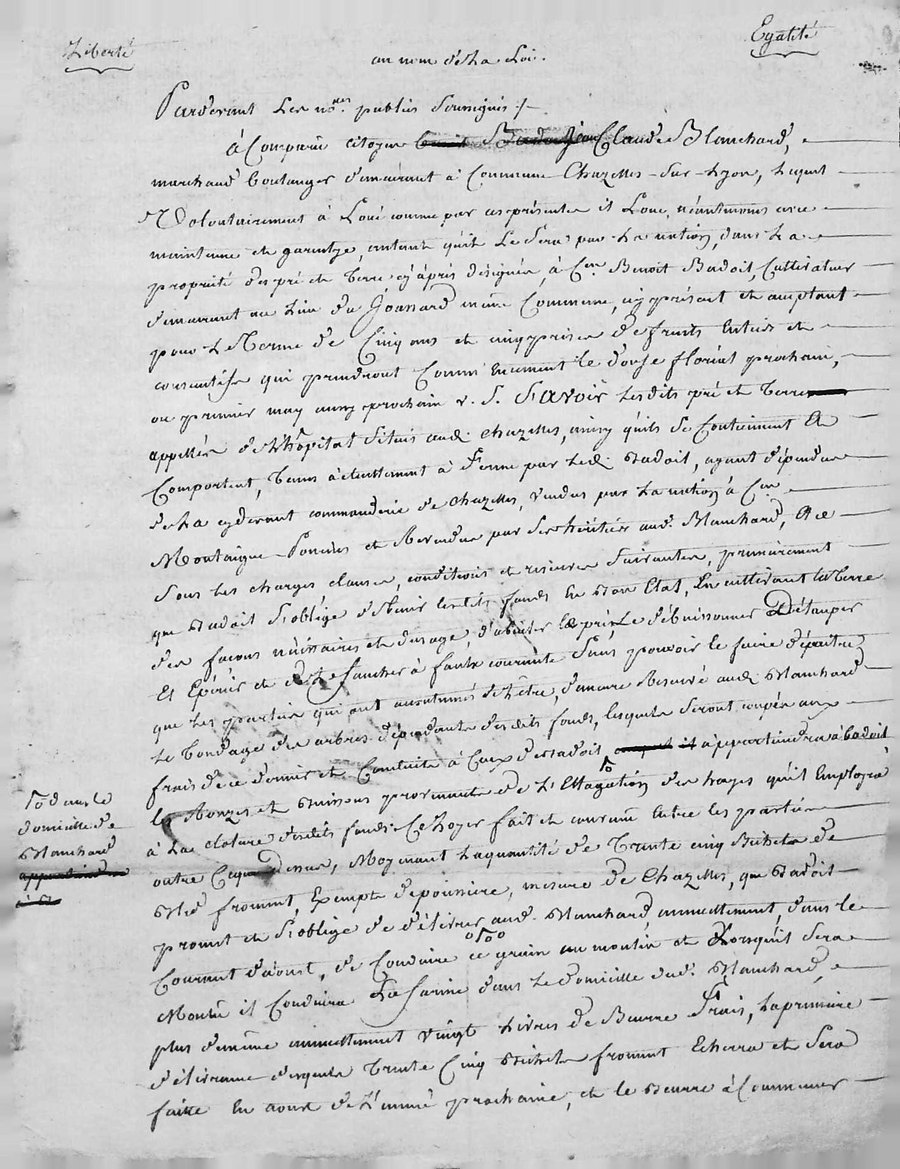 Liberté
Egalité
au nom de la Loi.
Pardevant Les nres publics Soussignés /
à Comparu citoyen Claude Blanchard,
marchand boulanger demeurant à Commune Chazelles-sur-Lyon, lequel
Volontairement à Loué comme par ces présentes il Loue, néantmoins avec
maintenue et garentye, autant qu'il Le Sera par La nation, dans La
propriété des pré et Terre, cy après désignés, à Cen Benoit Badoit, Cultivateur
demeurant au Lieu du Jonsard même Commune, icy présent et acceptant
pour Le Terme de Cinq ans et cinq prises de fruits Entiers et
consécutifs qui prendront Commencement le douze floréal prochain,
ou premier may aussy prochain v. S. Savoir Lesdits pré et Terre
appellés de L'hôpital Situés audt Chazelles, ainsy qu'ils se Contiennent Et
Comportent, Tenus actuellement à Ferme par Ledt Badoit, ayant dépendu
de La cydevant commanderie de Chazelles, vendus par La nation à Cen
Montaigne-Poncins et Revendus par Ses héritiers audt Blanchard, Et ce
Sous Les charges clauses, conditions et réserves Suivantes, premièrement
que Badoit S'oblige de Tenir lesdits fonds En Bon Etat, En cultivant la Terre
des façons nécessaires et d'usage, Le pré, Le débuissonner Détauper
Et Epérir et de Le faucher à faulx courante Sans pouvoir le faire dépaitre
que Les parties qui ont accoutumés de L'être, demeure Réservé audt Blanchard
Le Tondage des arbres dépendants desdits fonds, lesquels Seront coupés aux
frais de ce dernier et Conduits à Ceux de Badoit, appartiendra à Badoit
les Ronzes et Buissons provenants de L' des hayes qu'il Employra
à La cloture desdits fonds. Ce Loyer fait et convenu Entre les parties
outre Ce que dessus, Moyenant La quantité de Trente cinq Bichets de
Bled froment, Exempt de poussière, mesure de Chazelles, que Badoit
promet et S'oblige de délivrer audt Blanchard annuellement, dans le
Courant d'aoust, de Conduire ce grain au moulin et Lorsqu'il Sera
Moulu il Conduira La farine dans Le domicille dudt Blanchard,
plus de même annuellement vingt Livres de Beurre Frais, La première
délivrance desquels Trente Cinq Bichets froment Echerra et Sera
faite En aoust de L'année prochaine, et le Beurre à Commencer
dans le
domicille de
Blanchard